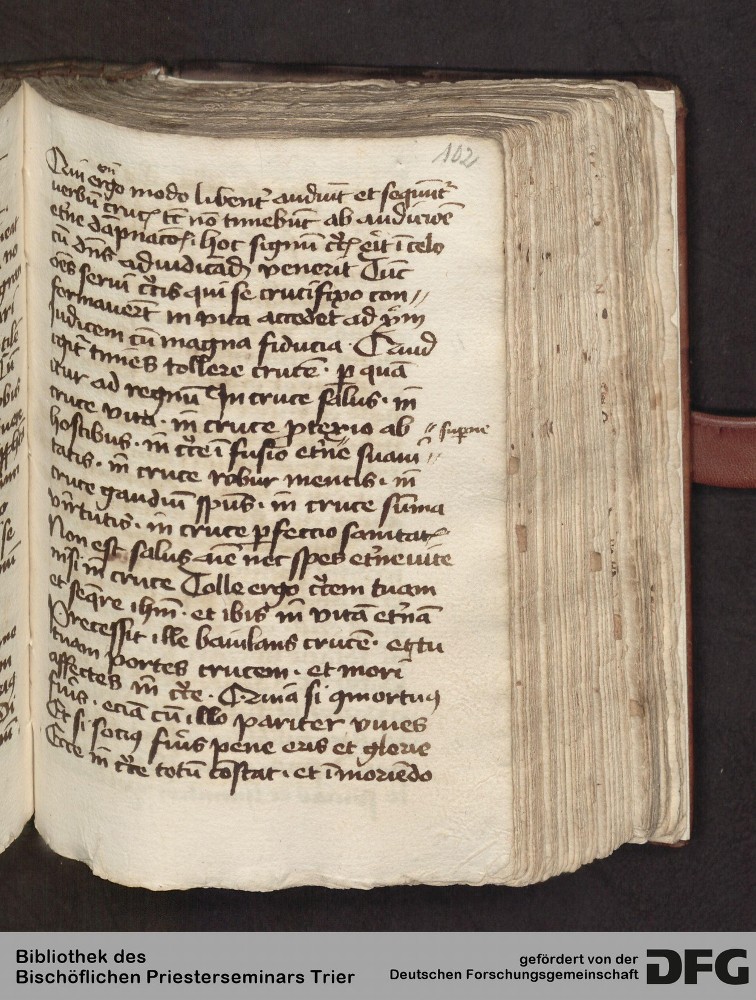 102
Qui ergo modo libent̄ audiūt et sequūt̄
verbū crucꝭ tc̄ nō timebūt ab audicōe
et̄ne dāpnacōꝭ hoc signū cͬcꝭ eͬit ī celo
cū dn̄s ad iudicādꝫ venerit Tūc
oēs servi cͬcis qui se crucifixo con〃
formaverūt in vita accedēt ad xp̄m
Judicem cū magna fiducia · Quid
igit̄ times tollere crucē · ꝑ quā
itur ad regnū In cruce salus · in
cruce vita · in cruce ptexio ab
hostibus · in cͬce īfusio et̄ne suavi〃
〃 suꝑne
tatis · in cruce robur mentis · in
cruce gaudiū spūs · in cruce sūma
virtutis · in cruce ꝑfeccio sanitatꝭ
Non est salus aīe nec spes et̄ne vite
nisi in cruce Tolle ergo cͬcem tuam
et seqͬre ihm̄ · et ibis in vitā et̄nā
Precessit ille baiulans crucē · et tu
tuam portes crucem · et mori
affectes in cͬce · Quia si ꝯmortuꝰ
fūis · eciā cū illo pariter vives
Et si sociꝰ fūis pene eris et glorie
Ecce in cͬce totū cōstat · et ī moriēdo
Bibliothek des
Bischöflichen Priesterseminars Trier
gefördert von der
Deutschen Forschungsgemeinschaft
DFG